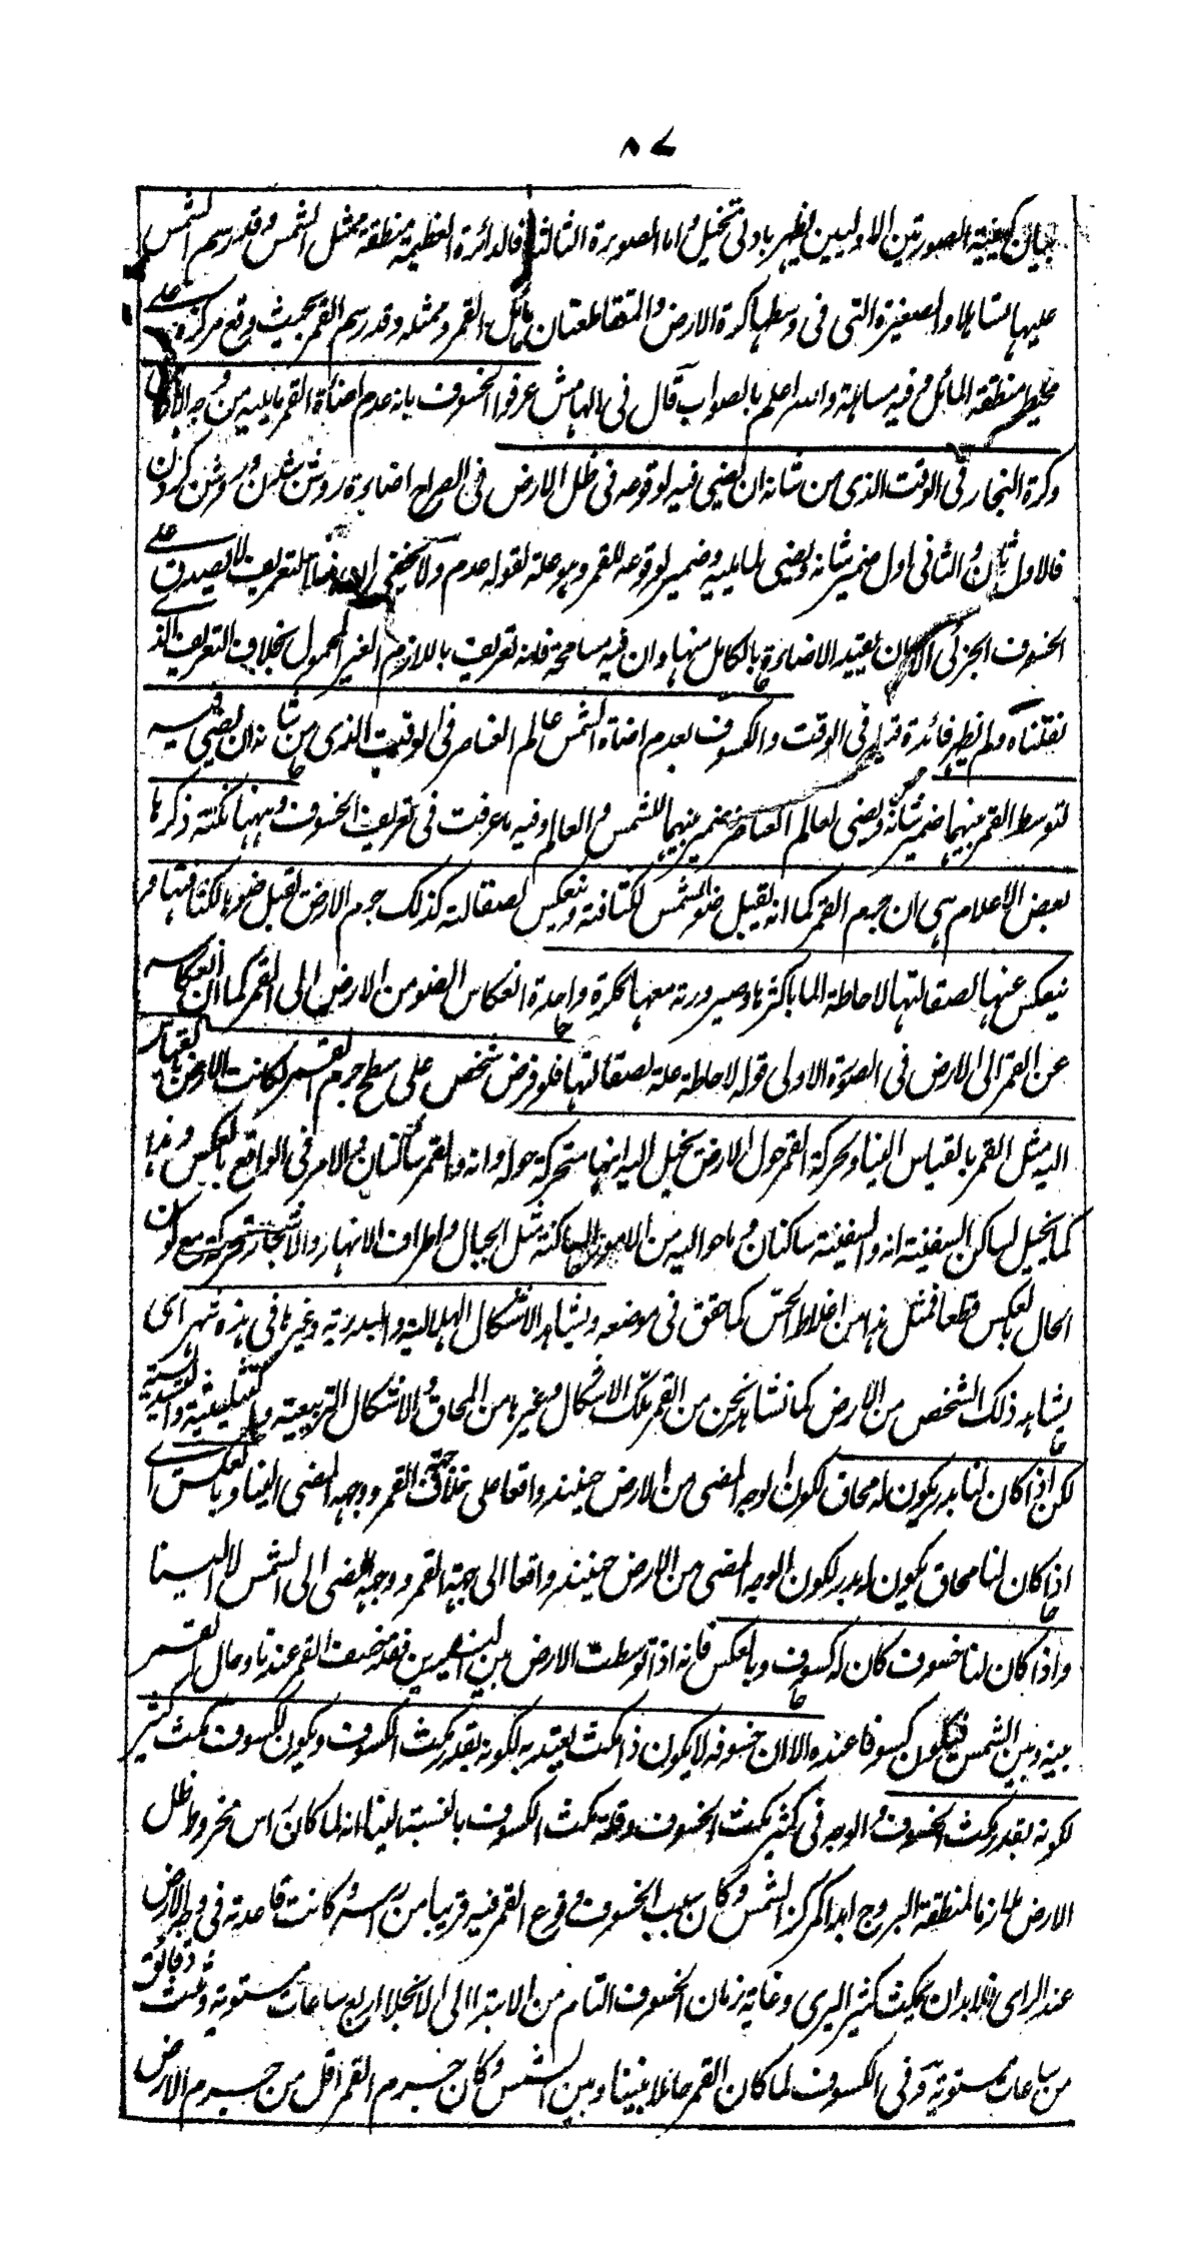 ٨٧
بيان كيفية الصورتين الاوليين يظهر بادنى تخيل واما الصورة الثالثة فالدائرة العظيمة منطقة ممثل الشمس وقد رسم الشمس
عليها تساهلا والصغيرة التى فى وسطها كرة الارض والمتقاطعتان مائل القمر وممثله وقد رسم القمر بحيث وقع مركزه على
محيط منطقة المائل وفيه مساهلة والله اعلم بالصواب قال فى الهامش عرفوا الخسوف بانه عدم اضاءة القمر ما يليه من وجه الارض
وكرة البخار فى الوقت الذى من شانه ان يضىء فيه لوقوعه فى ظل الارض فى الصراح اضاءة روشن شدن وروشن كردن
فالاول ثان والثانى اول ضمير شانه ويضىء لما يليه وضمير لوقوعه للقمر وهو علة لقوله عدم ولا يخفى ان هذا التعريف لا يصدق على
الخسوف الجزئى الا ان يقيد الاضاءة بالكامل منها وان فيه مسامحة فانه تعريف باللازم الغير المحمول بخلاف التعريف الذى
نقلناه ولم يظهر فائدة قيد فى الوقت والكسوف بعدم اضاءة الشمس عالم العناصر فى الوقت الذى من شانه ان يضىء فيه
لتوسط القمر بينهما ضمير شانه ويضىء لعالم العناصر ضمير بينهما للشمس والعالم وفيه ما عرفت فى تعريف الخسوف وههنا نكتة ذكرها
بعض الاعلام هى ان جرم القمر كما انه يقبل ضوء الشمس لكثافته وينعكس لصقالته كذلك جرم الارض يقبل ضوءها لكثافتها و
ينعكس عنها لصقالتها لاحاطة الماء باكثرها وصيرورته معها ككرة واحدة انعكاس الضوء من الارض الى القمر كما ان انعكاسه
عن القمر الى الارض فى الصورة الاولى قوله لاحاطة علة لصقالتها فلو فرض شخص على سطح جرم القمر لكانت الارض بالقياس
اليه مثل القمر بالقياس الينا ولحركة القمر حول الارض يخيل اليه انها متحركة حوله وانه والقمر ساكنان والامر فى الواقع بالعكس وهذا
كما يخيل لساكن السفينة انه والسفينة ساكنان وما حواليه من الامور الساكنة مثل الجبال واطراف الانهار والاشجار متحركة مع كون
الحال بالعكس قطعا فمثل هذا من اغلاط الحس كما حقق فى موضعه ويشاهد الاشكال الهلالية والبدرية وغيرها فى هذه شهر اى
يشاهد ذلك الشخص من الارض كما نشاهد نحن من القمر تلك الاشكال وغيرها من المحاق والاشكال التربيعية والتثليثية والتسديسية
لكن اذا كان لنا بدر يكون له محاق لكون الوجه المضىء من الارض حينئذ واقعا على خلاف جهة القمر ووجهه المضىء الينا وبالعكس اى
اذا كان لنا محاق يكون له بدر لكون الوجه المضىء من الارض حينئذ واقعا الى جهة القمر ووجهه المضىء الى الشمس لا الينا
واذا كان لنا خسوف كان له كسوف وبالعكس فانه اذا توسطت الارض بين النيرين فقد خسف القمر عندنا وحال القمر
بينه وبين الشمس فيكون كسوفا عنده الا ان خسوفه لا يكون ذا مكث يعتد به لكونه بقدر مكث الكسوف ويكون لكسوفه مكث كثير
لكونه بقدر مكث الخسوف والوجه فى كثير مكث الخسوف وقلة مكث الكسوف بالنسبة الينا انه لما كان راس مخروط ظل
الارض ملازما لمنطقة البروج ابدا كمركز الشمس وكان سبب الخسوف وقوع القمر فيه قريبا من راسه وكانت قاعدته فى وجه الارض
عند الراى فلا بد ان يمكث كثيرا ليرى وغاية زمان الخسوف التام من الابتداء الى الانجلاء اربع ساعات مستوية وثلث دقائق
من ساعات مستوية وفى الكسوف لما كان القمر حائلا بيننا وبين الشمس وكان جرم القمر اقل من جرم الارض